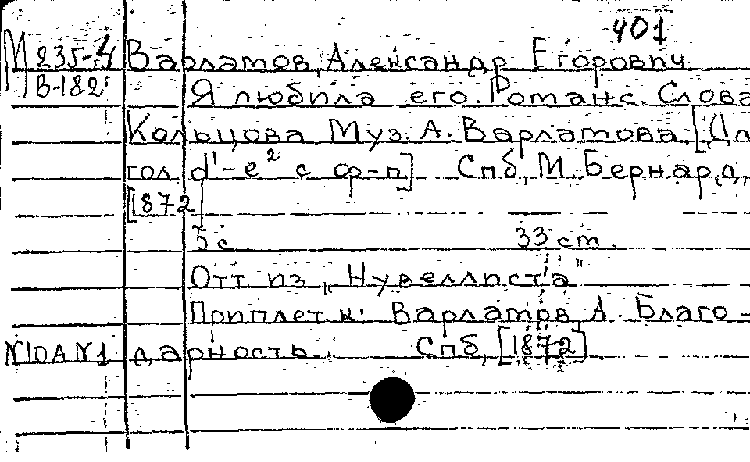 401
М 235-4 Варламов, Александр Егорович
В-182 Я любила его. Романс. Слова
Кольцова Муз. А. Варламова. [Дл
гол. d¹-e² с ф-п] Спб, М. Бернард,
[1872]
5 с 33 cm.
Отт из „Нувеллиста"
Приплет к: Варламов, А. Благо-
дарность. Спб, [1872]